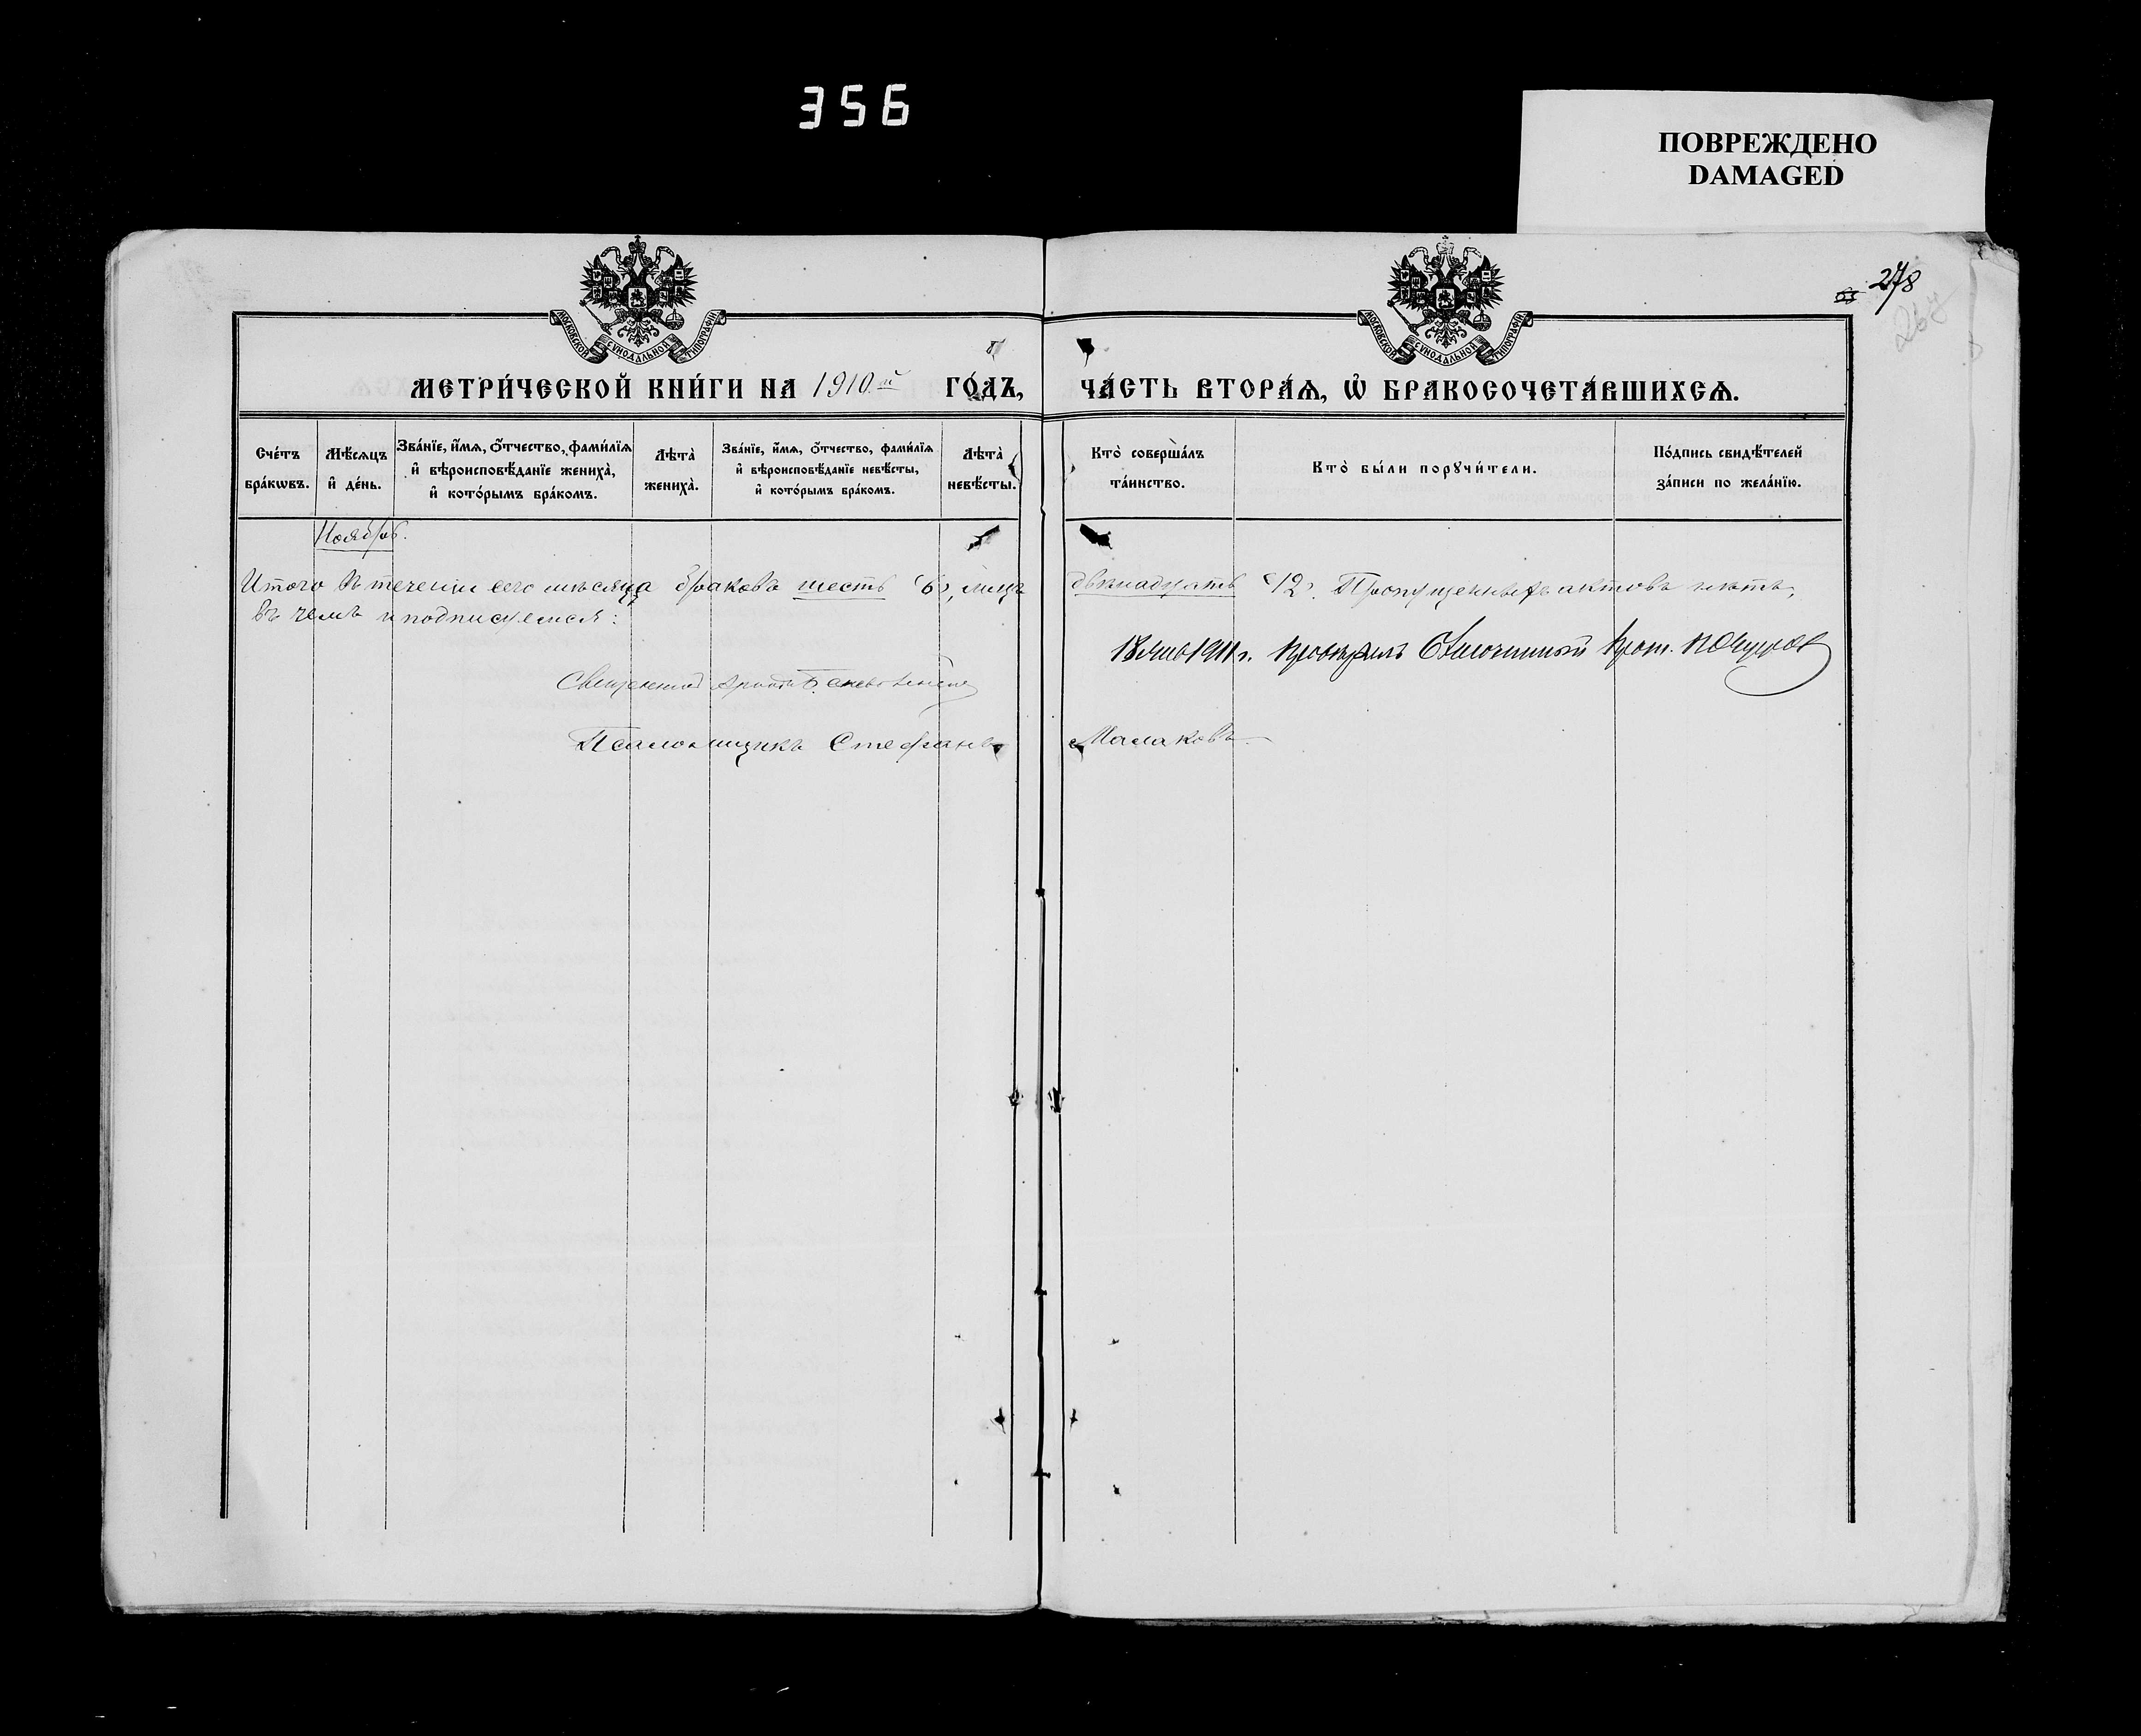 356
ПОВРЕЖДЕНО
DAMAGED
278
267
МОСКОВСКОЙ СѴНОДАЛЬНОЙ ТИПОГРАФІИ
МОСКОВСКОЙ СѴНОДАЛЬНОЙ ТИПОГРАФІИ
МЕТРИ́ЧЕСКОЙ КНИ́ГИ НА 1910.ый ГО́ДЪ, ЧА́СТЬ ВТОРА́Ѧ, Ѡ҆ БРАКОСОЧЕТА́ВШИХСѦ.
Сче́тъ бра́кѡвъ.
Мѣ́сяцъ и҆ де́нь.
Зва́нїе, и҆́мя, ѻ҆́тчество, фами́лїя и҆ вѣроисповѣ́данїе жениха̀, и҆ кото́рымъ бра́комъ.
Лѣта̀ жениха̀.
Зва́нїе, и҆́мя, ѻ҆́тчество, фами́лїя и҆ вѣроисповѣ́данїе невѣ́сты, и҆ кото́рымъ бра́комъ.
Лѣта̀ невѣ́сты.
Кто̀ соверша́лъ та́инство.
Кто̀ бы́ли порꙋчи́тели.
По́дпись свидѣ́телей за́писи по жела́нїю.
Ноябрь.
Итого въ теченіи сего мѣсяца браковъ шесть (6), лицъ двѣнадцать (12). Пропущенныхъ актовъ нѣтъ,
въ чемъ и подписуемся:
18 янв 1911 г. Провѣрилъ Благочинный Прот.
Священникъ
Псаломщикъ Стефанъ Малаковъ